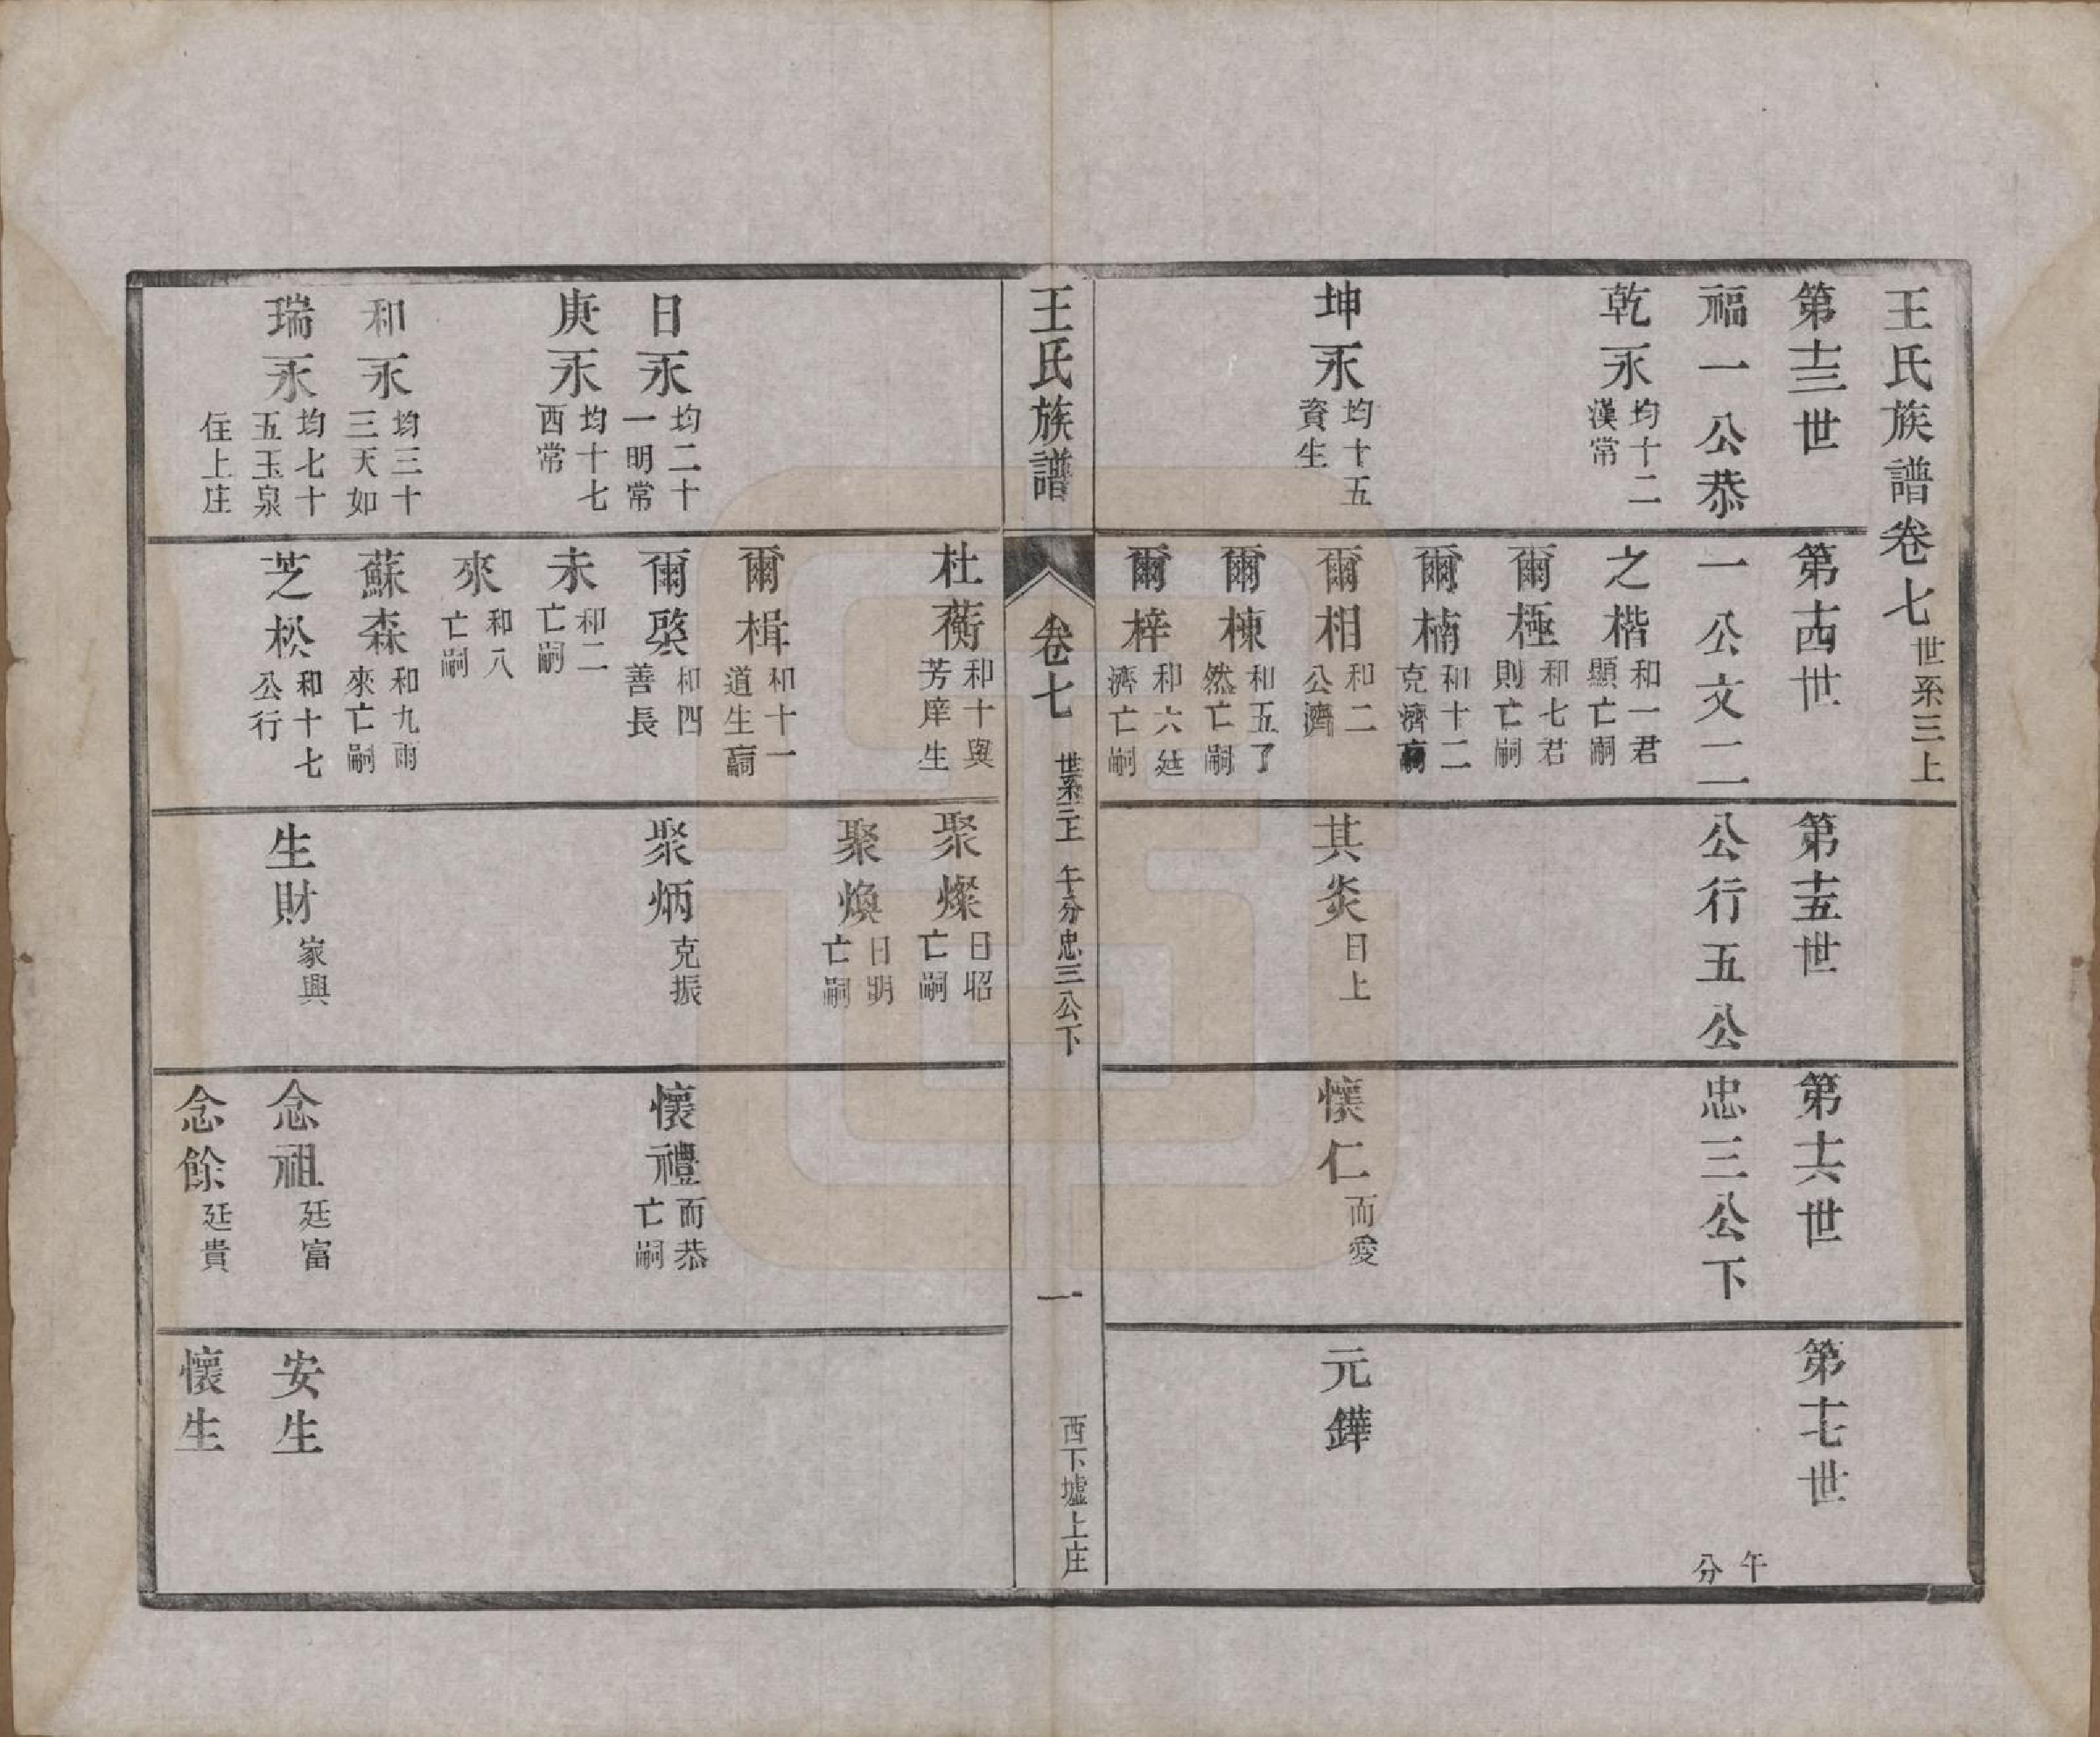 王氏族譜卷七 世系三上
第十三世 第十四世 第十五世 第十六世 第十七世
福一公恭一公文二公行五公忠三公下 午分
乾永 均十二漢常 之楷 和一君顯亡嗣
爾極 和七君則亡嗣
爾楠 和十二克濟亡嗣
坤永 均十五資生 爾相 和二公濟 其炎 日上 懷仁 而愛 元鏵
爾棟 和五了然亡嗣
爾梓 和六廷濟亡嗣
王氏族譜 卷七 世系三上 午分忠三公下 一 西下墟上庄
杜蘅 和十與芳庠生 聚燦 日昭亡嗣
聚煥 日明亡嗣
爾楫 和十一道生亡嗣
日永 均二十一明常 爾棨 和四善長 聚炳 克振 懷禮 而恭亡嗣
庚永 均十七西常 未 和二亡嗣
來 和八亡嗣
和永 均三十三天如 蘇森 和九雨來亡嗣
瑞永 均七十五玉泉 芝松 和十七公行 生財 家興 念祖 廷富 安生
住上庄 念餘 廷貴 懷生